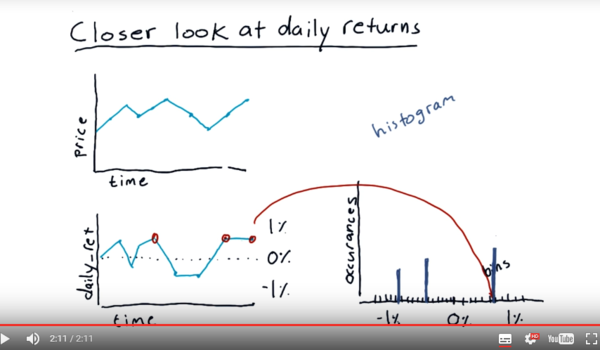 Closer look at daily returns
price
time
histogram
daily_ret
1%
0%
-1%
time
occurances
bins
-1%
0%
1%
2:11 / 2:11
HD
YouTube